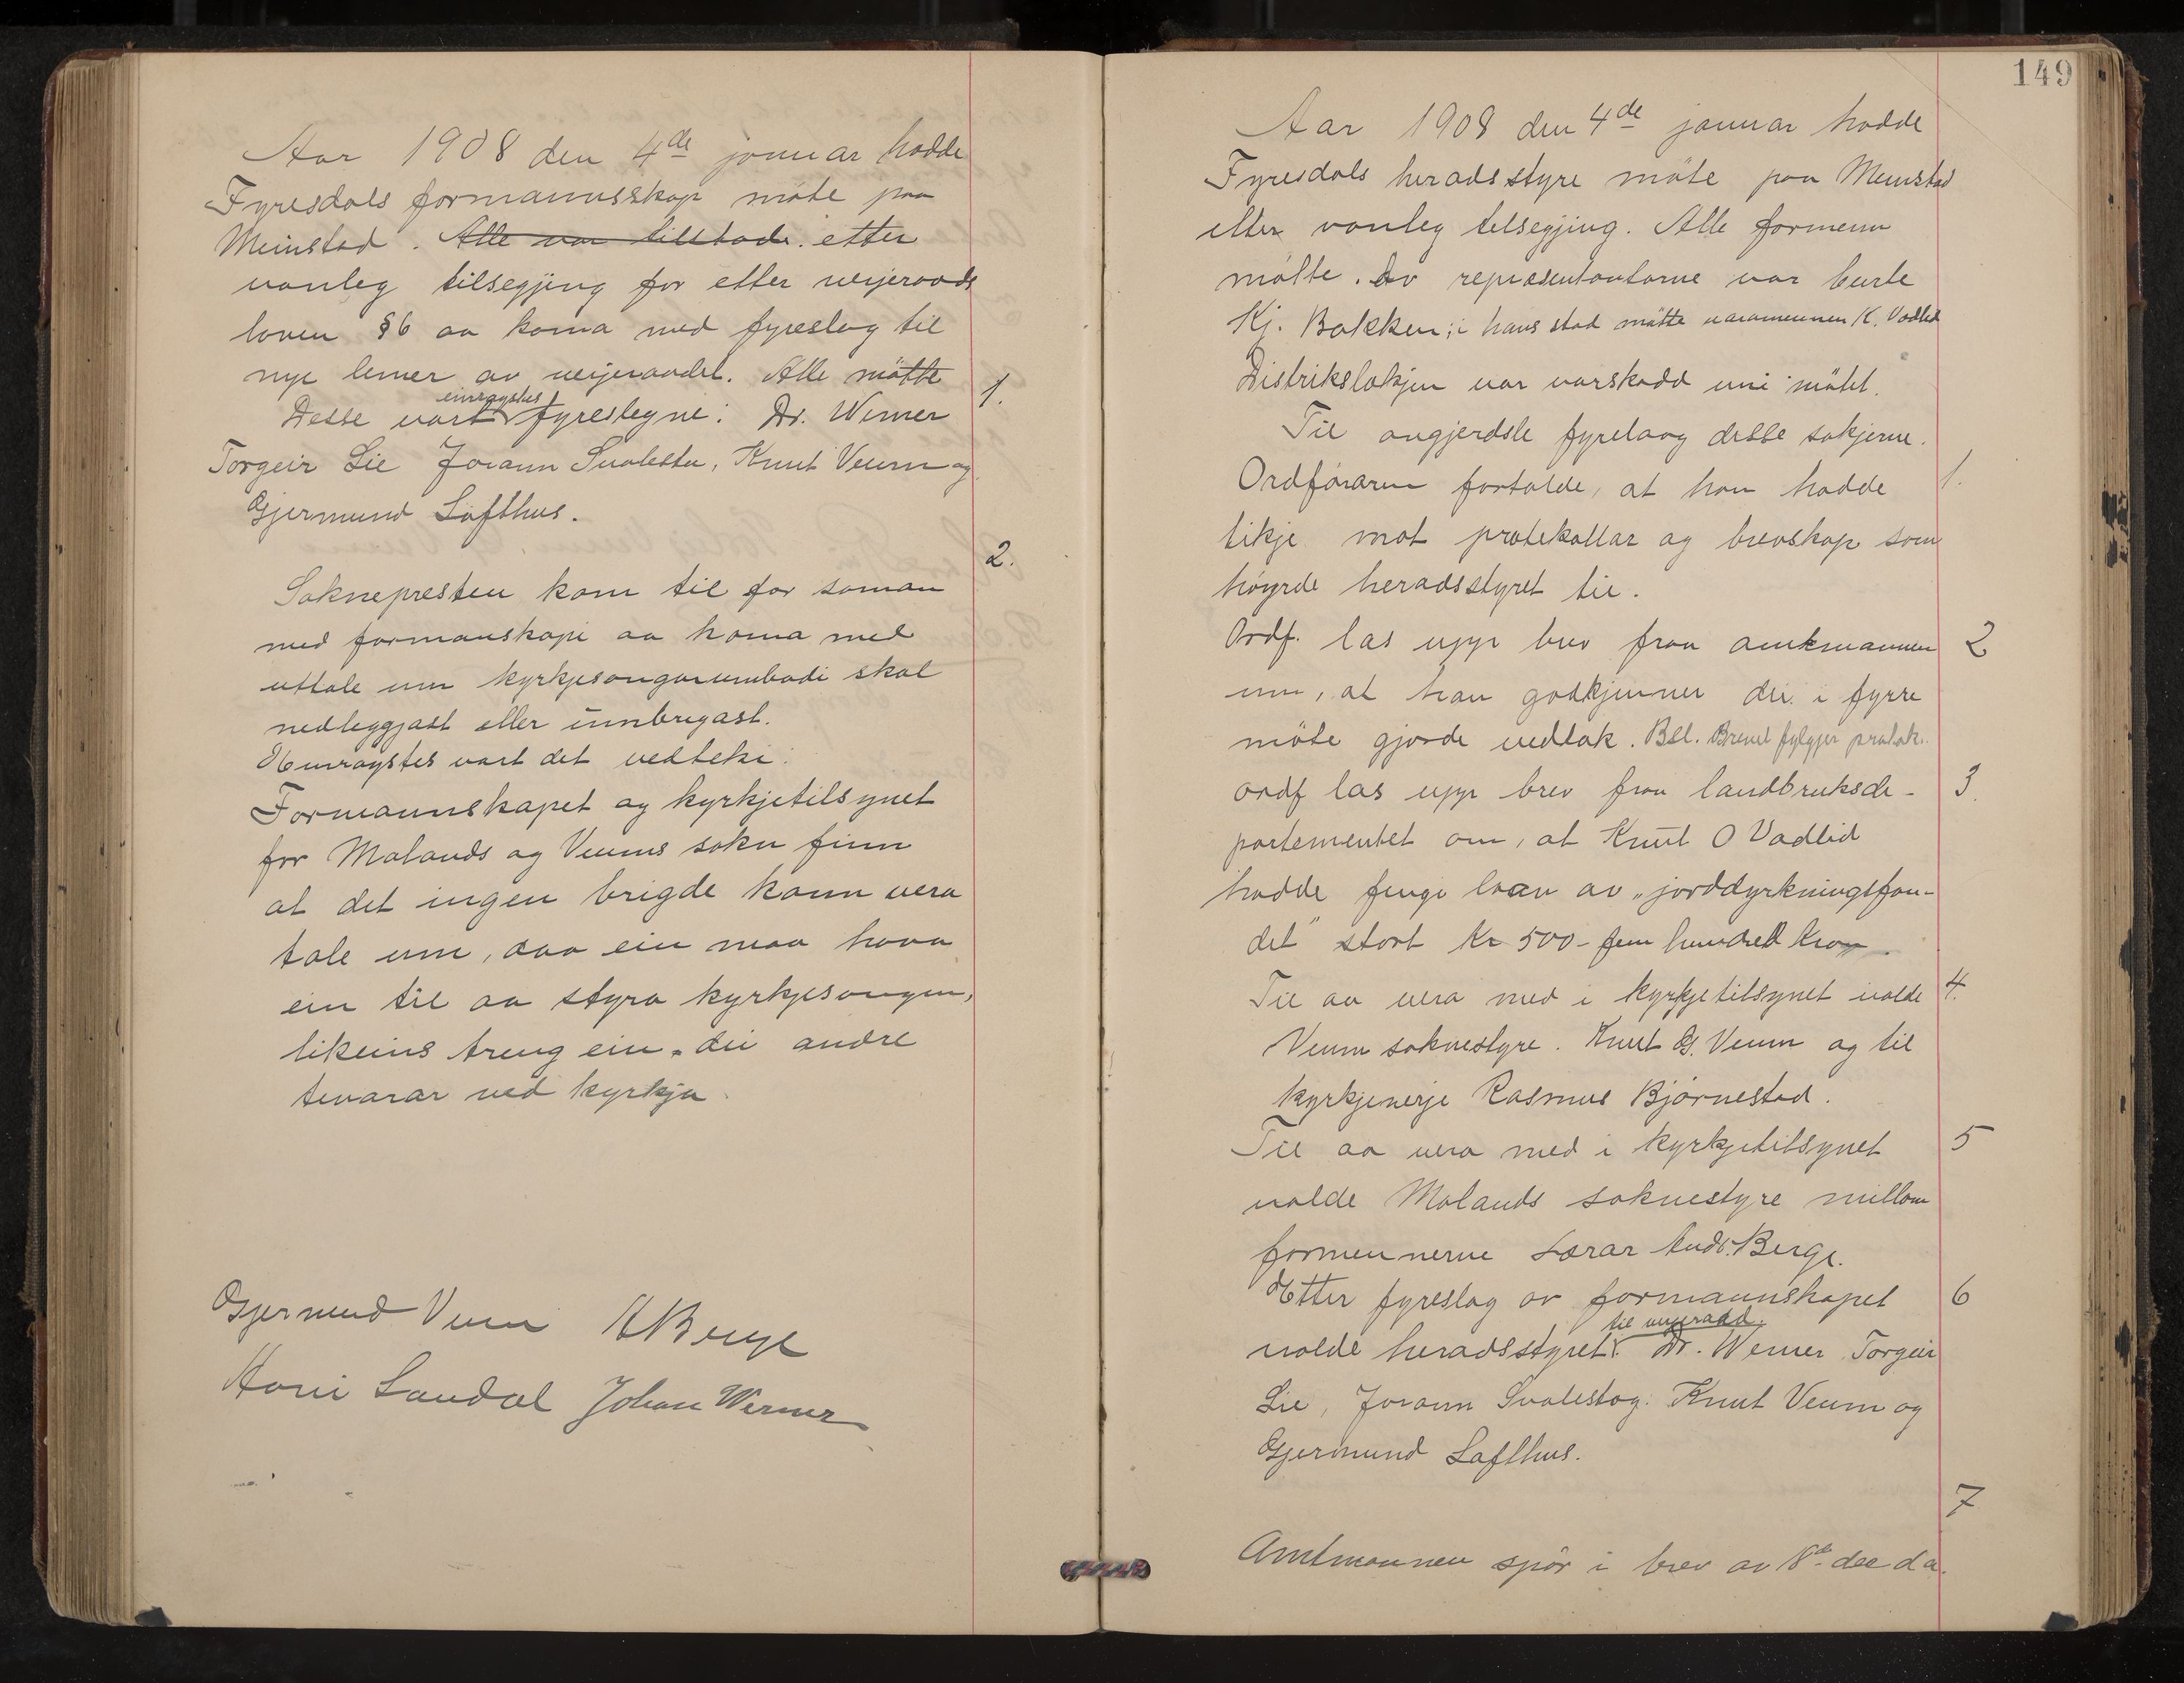 Aar 1908 den 4de januar hadde
Fyresdals formannsskap møte paa
Meinstad. Alle var tilstade. etter
vanleg tilsegjing for etter verjeraads
loven §6 aa koma med fyreslag til
nye lemer av verjeraadet. Alle møtte
1.
einrøystes
Desse vart fyreslegne: Dr. Werner
Torgeir Lie Jorann Svalestu, Knut Veum og
Gjermund Lofthus.
2.
Soknepresten kom til for saman
med formanskapi aa koma med
uttale um kyrkjesongarumbodi skal
nedleggjast eller umbrigast.
Einrøystes vart det vedteki:
Formannskapet og kyrkjetilsynet
for Molands og Veums sokn finn
at det ingen brigde kann vera
tale um, daa ein maa hava
ein til aa styra kyrkjesongen,
likeins treng ein dei andre
tenarar ved kyrkja
Gjermund Veum ABerge
Hani Sandal Johan Werner
149
Aar 1908 den 4de januar hadde
Fyresdals heradsstyre møte paa Meinstad
etter vanleg telsegjing. Alle formenn
møtte. Av representantarne var burte
Kj. Bakken; i hans stad møtte varamennen K. Vadlid
Distriktslækjen var varskodd um møtet.
Til avgjerdsle fyrelaag desse sakjerne.
1.
Ordføraren fortalde, at han hadde
tikje mot protekollar og brevskap som
høyrde heradsstyret til.
2
Ordf. las upp brev fraa amtmannen
um, at han godkjenner dei i fyrre
møte gjorde vedtak. Bil. Brevet fylgjer protok.
3.
Ordf las upp brev fraa landbruksde-
partementet om, at Knut O Vadlid
hadde fengi laan av "jorddyrkningsfon-
det" stort Kr 500 - fem hundred Kron
4.
Til aa vera med i kyrkjetilsynet valde
Veum soknestyre. Knut G. Veum og til
kyrkjeverje Rasmus Bjørnestad.
5
Til aa vera med i kyrkjetilsynet
valde Molands soknestyre millom
formennerne Lærar Andr. Berge.
6
Etter fyreslag av formannskapet
til verjeraad.
valde heradsstyret Dr. Werner Torgeir
Lie, Jorann Svalestog. Knut Veum og
Gjermund Lofthus.
7
Amtmannen spør i brev av 18de des d a.